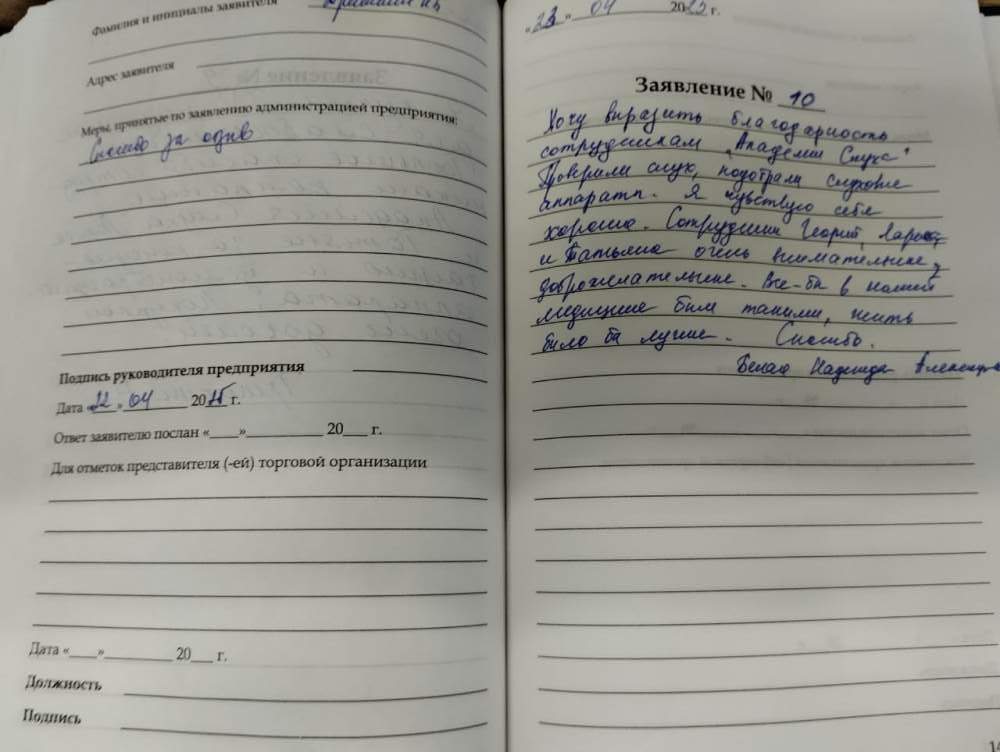 Фамилия и инициалы заявителя
Адрес заявителя
Меры, принятые по заявлению администрацией предприятия:
Спасибо за
Подпись руководителя предприятия
Дата «22» 04 20 г.
Ответ заявителю послан «___»_________ 20___ г.
Для отметок представителя (-ей) торговой организации
Дата «___»_________ 20___ г.
Должность
Подпись
« » 04 20 г.
Заявление № 10
Хочу выразить благодарность
сотрудникам „Академии Слуха"
Проверили слух, подобрали слуховые
аппараты. Я чувствую себя
хорошо. Сотрудники
и Татьяна очень внимательные,
доброжелательные. Все-бы в нашей
медицине были такими, жить
было бы лучше. Спасибо.
Белая Надежда